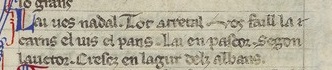 lo gran⁊
Lai ues nadal. Tot atretal uos faill la
carns el uis el pans. Lai en pascor. Segon
lauctor. Creiser en lagur dels albans.